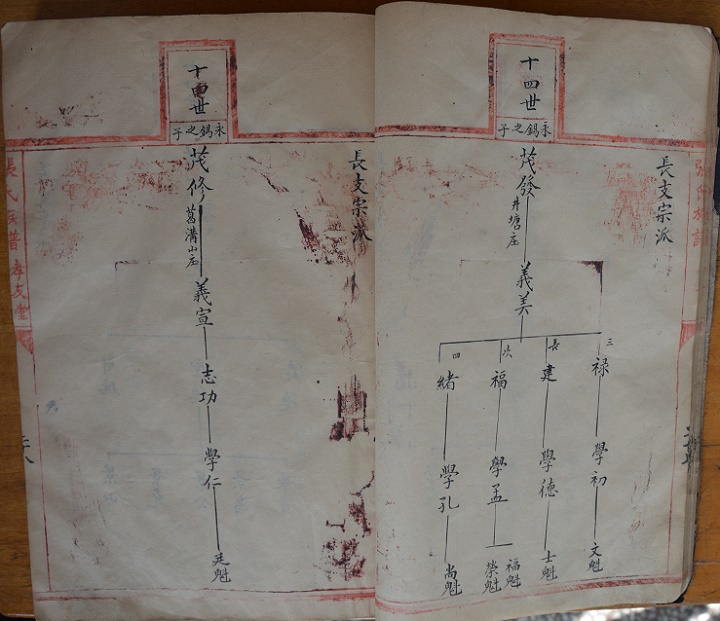 長支宗派
十四世
永錫之子
茂發
井塘庄
義美
三
祿
學初
文魁
長
建
學德
士魁
次
福
學孟
福魁
榮魁
四
緒
學孔
尚魁
長支宗派
十四世
永錫之子
茂修
葛溝山庄
義宣
志功
學仁
廷魁
張氏族譜
孝友堂